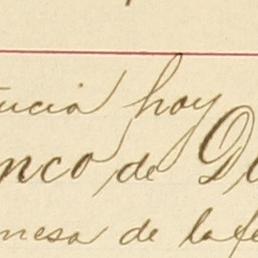 tucia hoy
nco de D
mesa de la fe